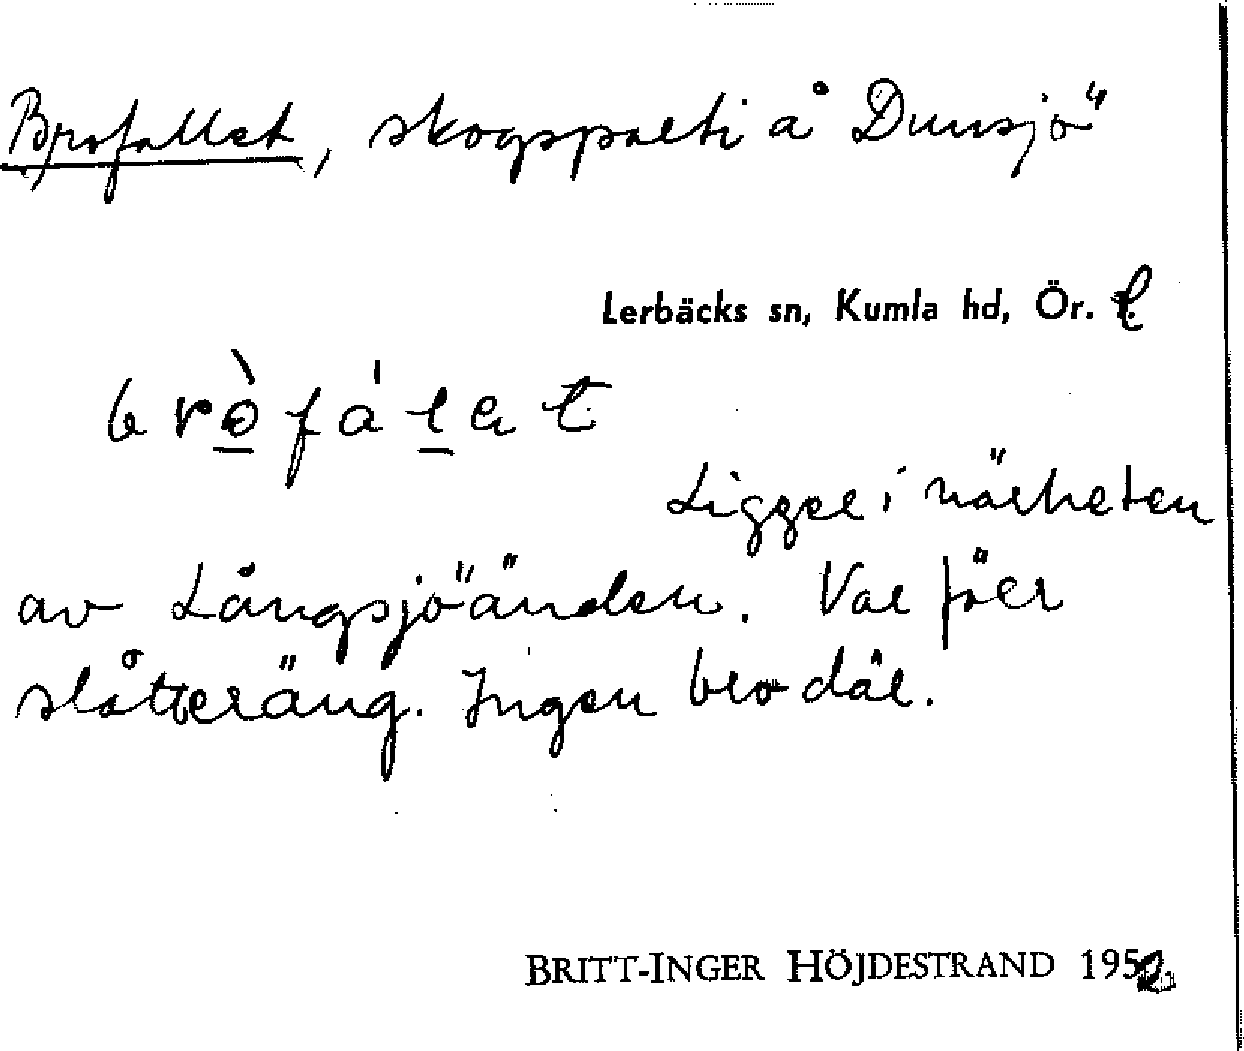 Brofallet, skogsparti å Dunsjö
Lerbäcks sn, Kumla hd, Ör. l
brò̲fálet
Ligger i närheten
av Långsjöänden. Var förr
slåtteräng. Ingen bro där.
BRITT-INGER HÖJDESTRAND 195